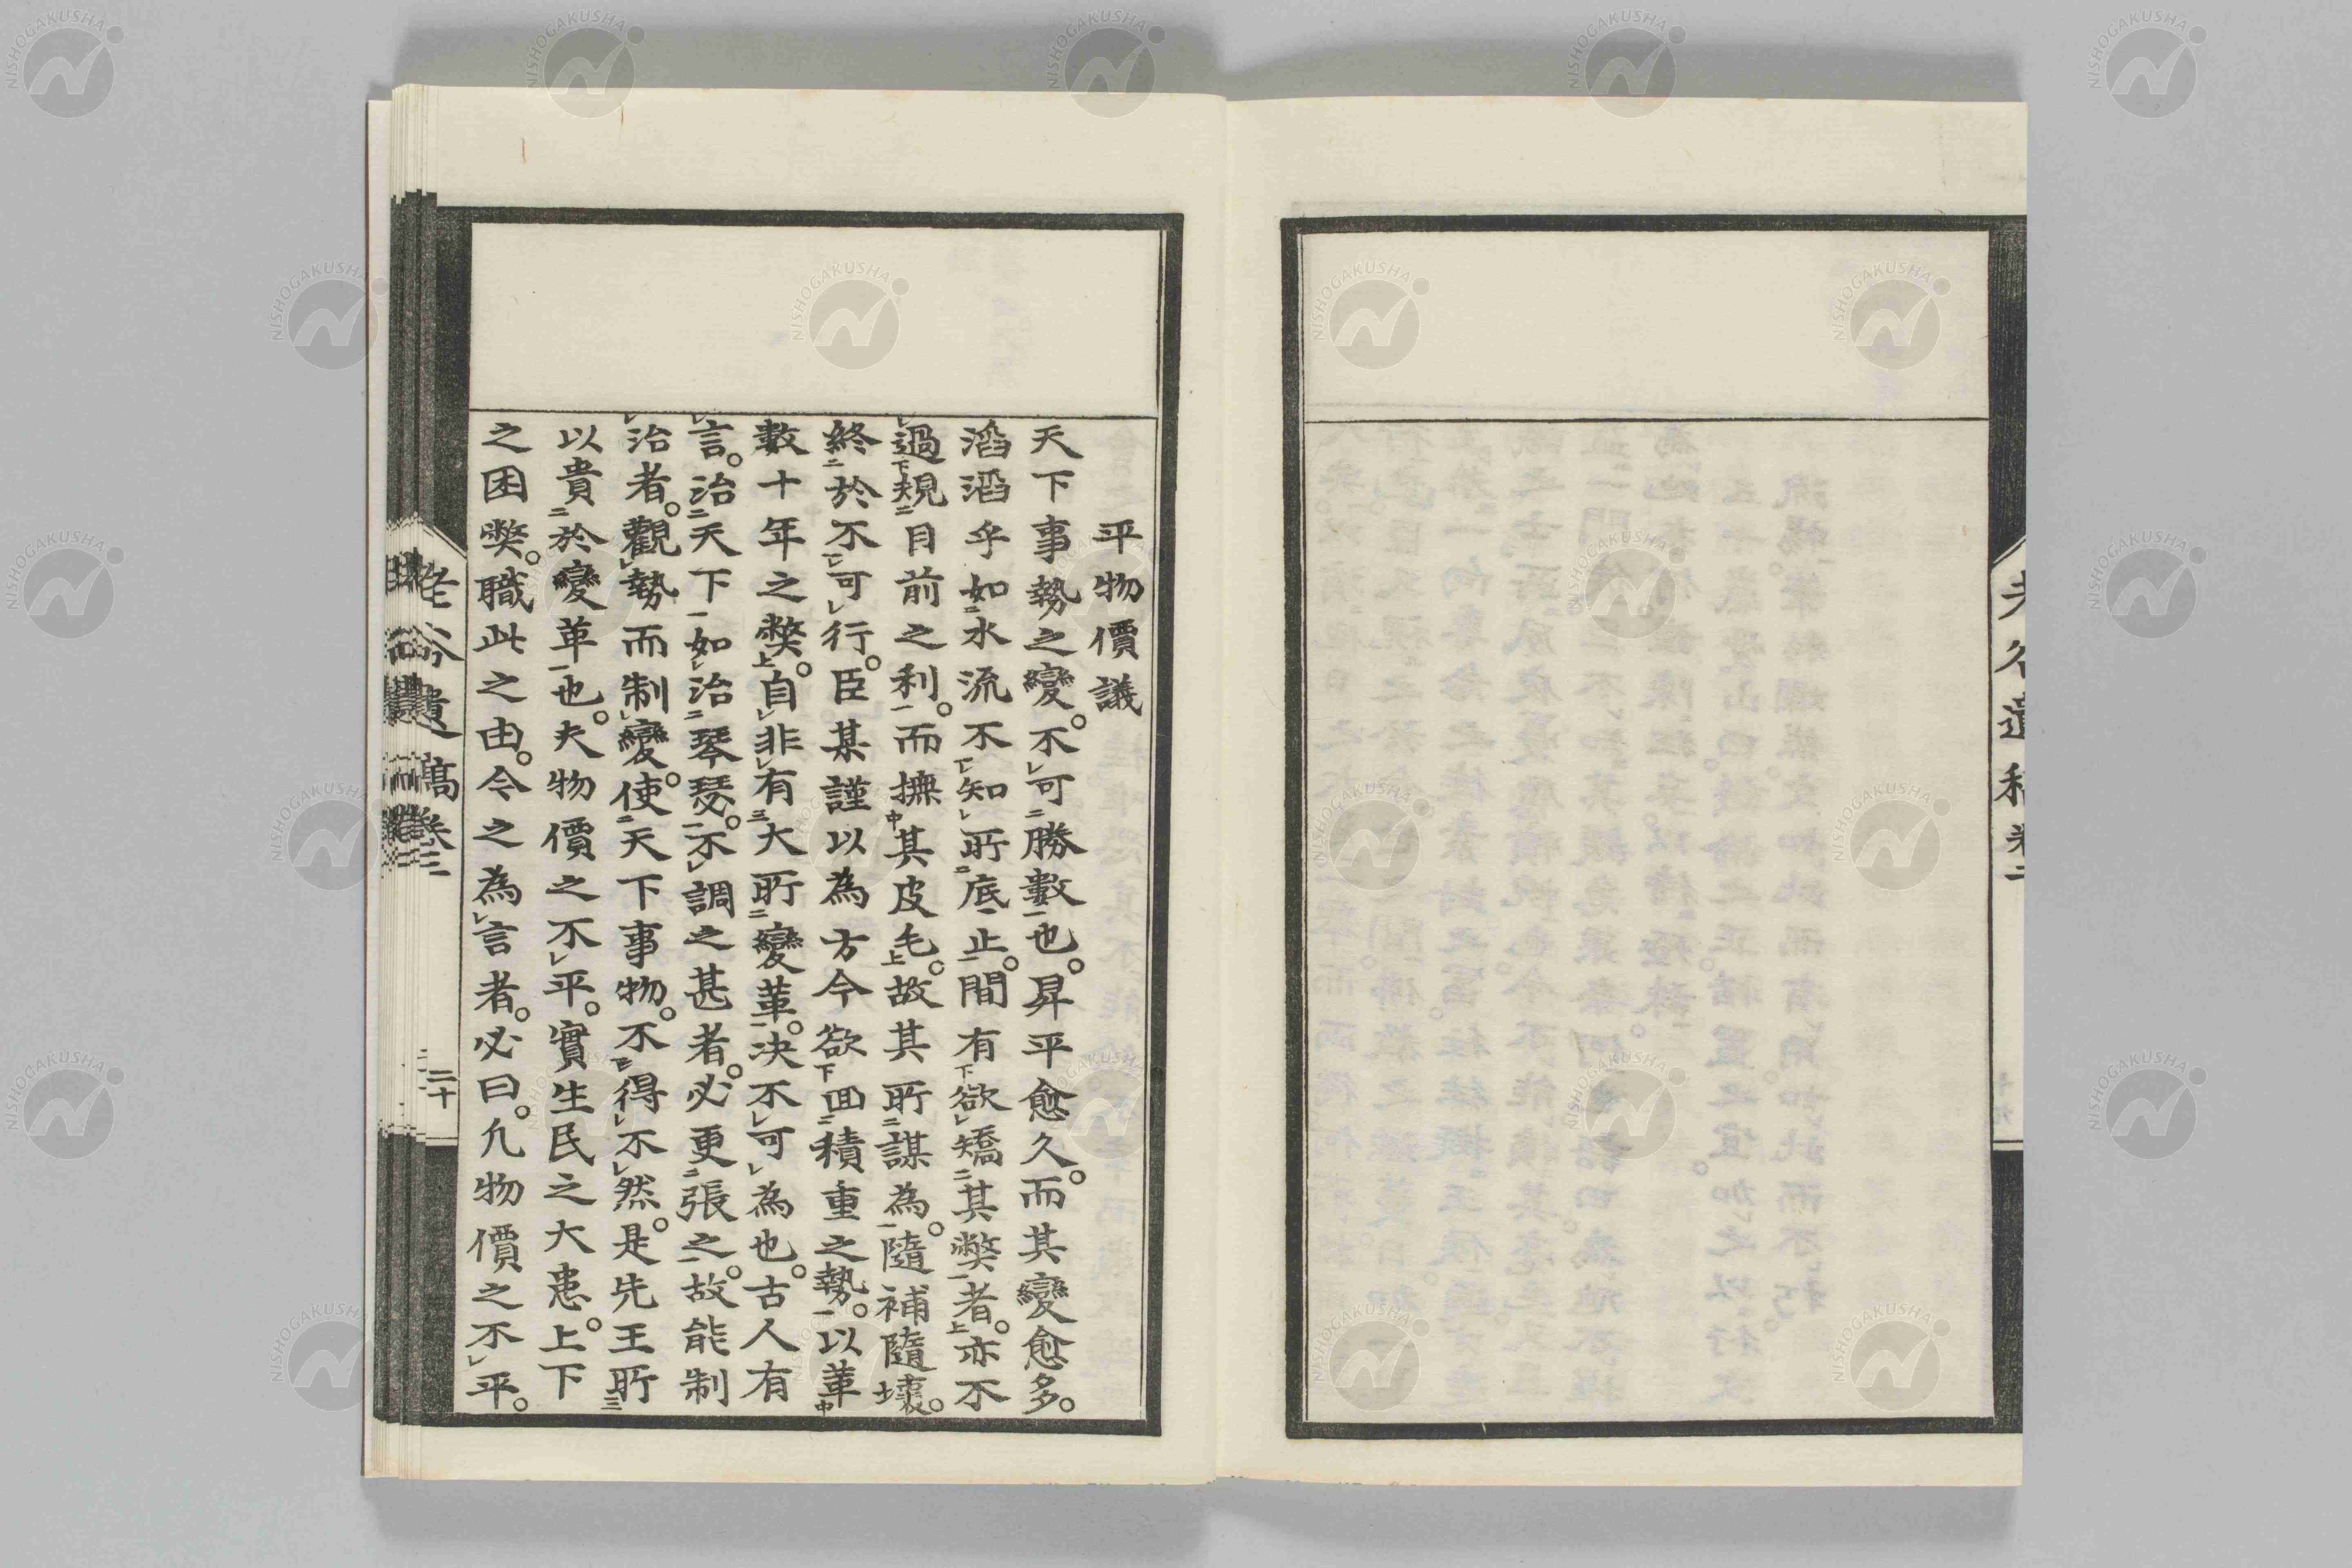 平物價議
天下事勢之變。不可勝數也。昇平愈久。而其變愈多。
滔滔乎如水流不知所底止。間有欲矯其弊者。亦不
過規目前之利。而撫其皮毛。故其所謀為。隨補隨壞。
終於不可行。臣某謹以為方今欲回積重之勢。以革
數十年之弊。自非有大所變革。决不可為也。古人有
言。治天下如治琴瑟。不調之甚者。必更張之。故能制
治者。觀勢而制變。使天下事物。不得不然。是先王所
以貴於變革也。夫物價之不平。實生民之大患。上下
之困弊。職此之由。今之為言者。必曰。凢物價之不平。
二十
NISHOGAKUSHA